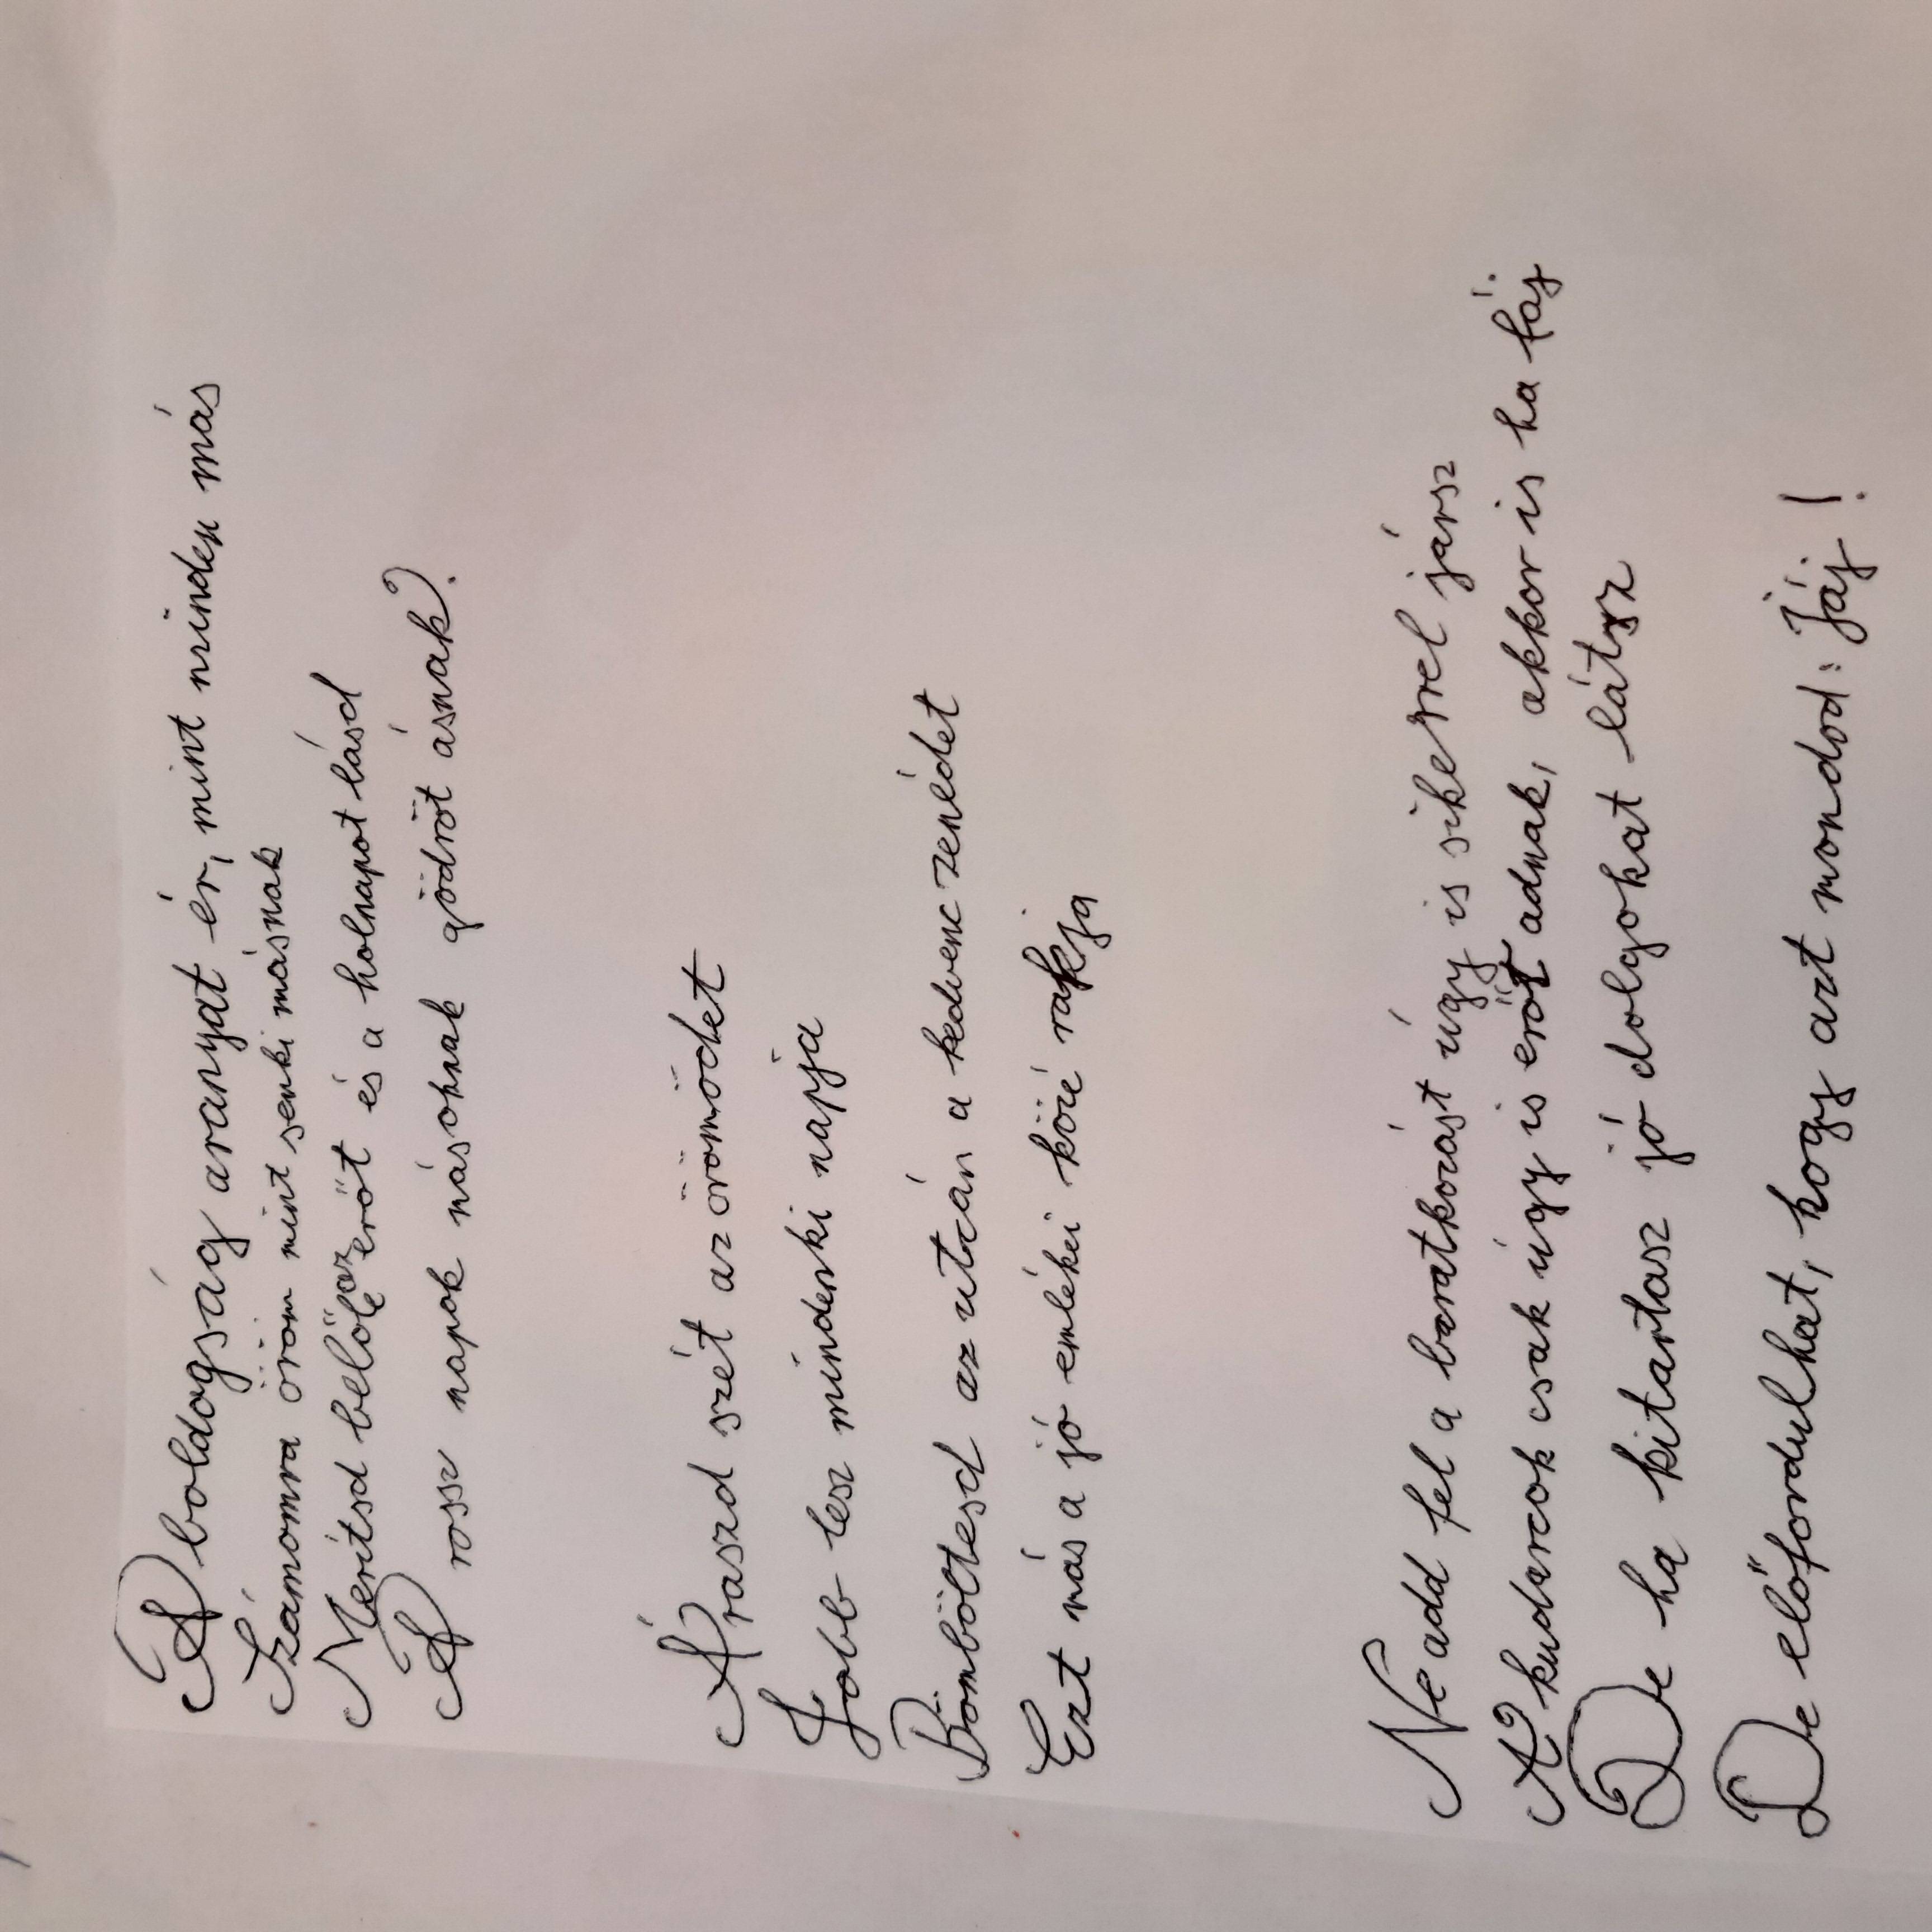 A boldogság aranyat ér, mint minden más
Számomra öröm mint senki másnak
Merítsd belőle az erőt és a holnapot lásd
A rossz napok másoknak gödröt ásnak?
Áraszd szét az örömödet
Jobb lesz mindenki napja
Bömböltesd az utcán a kedvenc zenédet
Ezt más a jó emlékei közé rakja
Ne add fel a baratkozást úgy is sikerrel jársz
A kudarcok csak úgy is erőt adnak, akkor is ha fáj
De ha kitartasz jó dolgokat látsz
De előfordulhat, hogy azt mondod: Jáj!